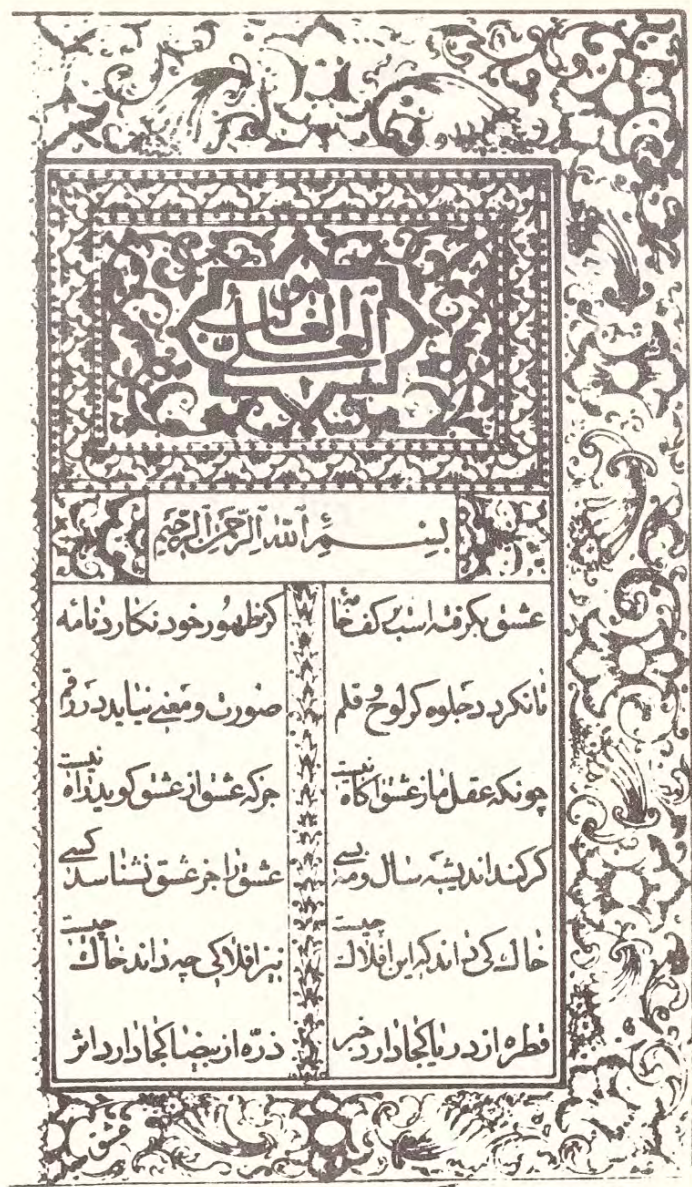 هو
العلی الغالب
بسم الله الرحمن الرحیم
عشق بکرفته است بر کف خامهٔ کز ظهور خود نکارد نامهٔ
تا نکردد جلوه کر لوح و قلم صورت و معنی نیاید در رقم
چونکه عقل ما ز عشق اکاه نیست جز که عشق از عشق کوید راه نیست
کر کند اندیشه سال و مه بسی عشق را جز عشق نشناسد کسی
خاک کی داند که این افلاک چیست نیز افلاکی چه داند خاک چیست
قطره از دریا کجا دارد خبر ذرّه از بیضا کجا دارد اثر